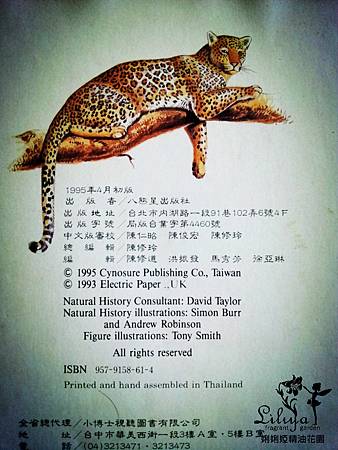 1995年4月初版
出 版 者／八熊星出版社
出版地址／台北市內湖路一段91巷102弄6號4F
出版字號／局版台業字第4460號
中文版審校／陳仁昭 陳俊宏 陳修玲
總 編 輯／陳修玲
編 輯／陳修遒 洪振發 馬秀芬 徐亞琳
© 1995 Cynosure Publishing Co., Taiwan
© 1993 Electric Paper ., UK
Natural History Consultant: David Taylor
Natural History illustrations: Simon Burr
and Andrew Robinson
Figure illustrations: Tony Smith
All rights reserved
ISBN 957-9158-61-4
Printed and hand assembled in Thailand
全省總代理／小博士視聽圖書有限公司
地 址／台中市華美西街一段3樓A室．5樓B室
電 話／(04)3213471．3213473
Liliya
fragrant garden
娳娳婭精油花園